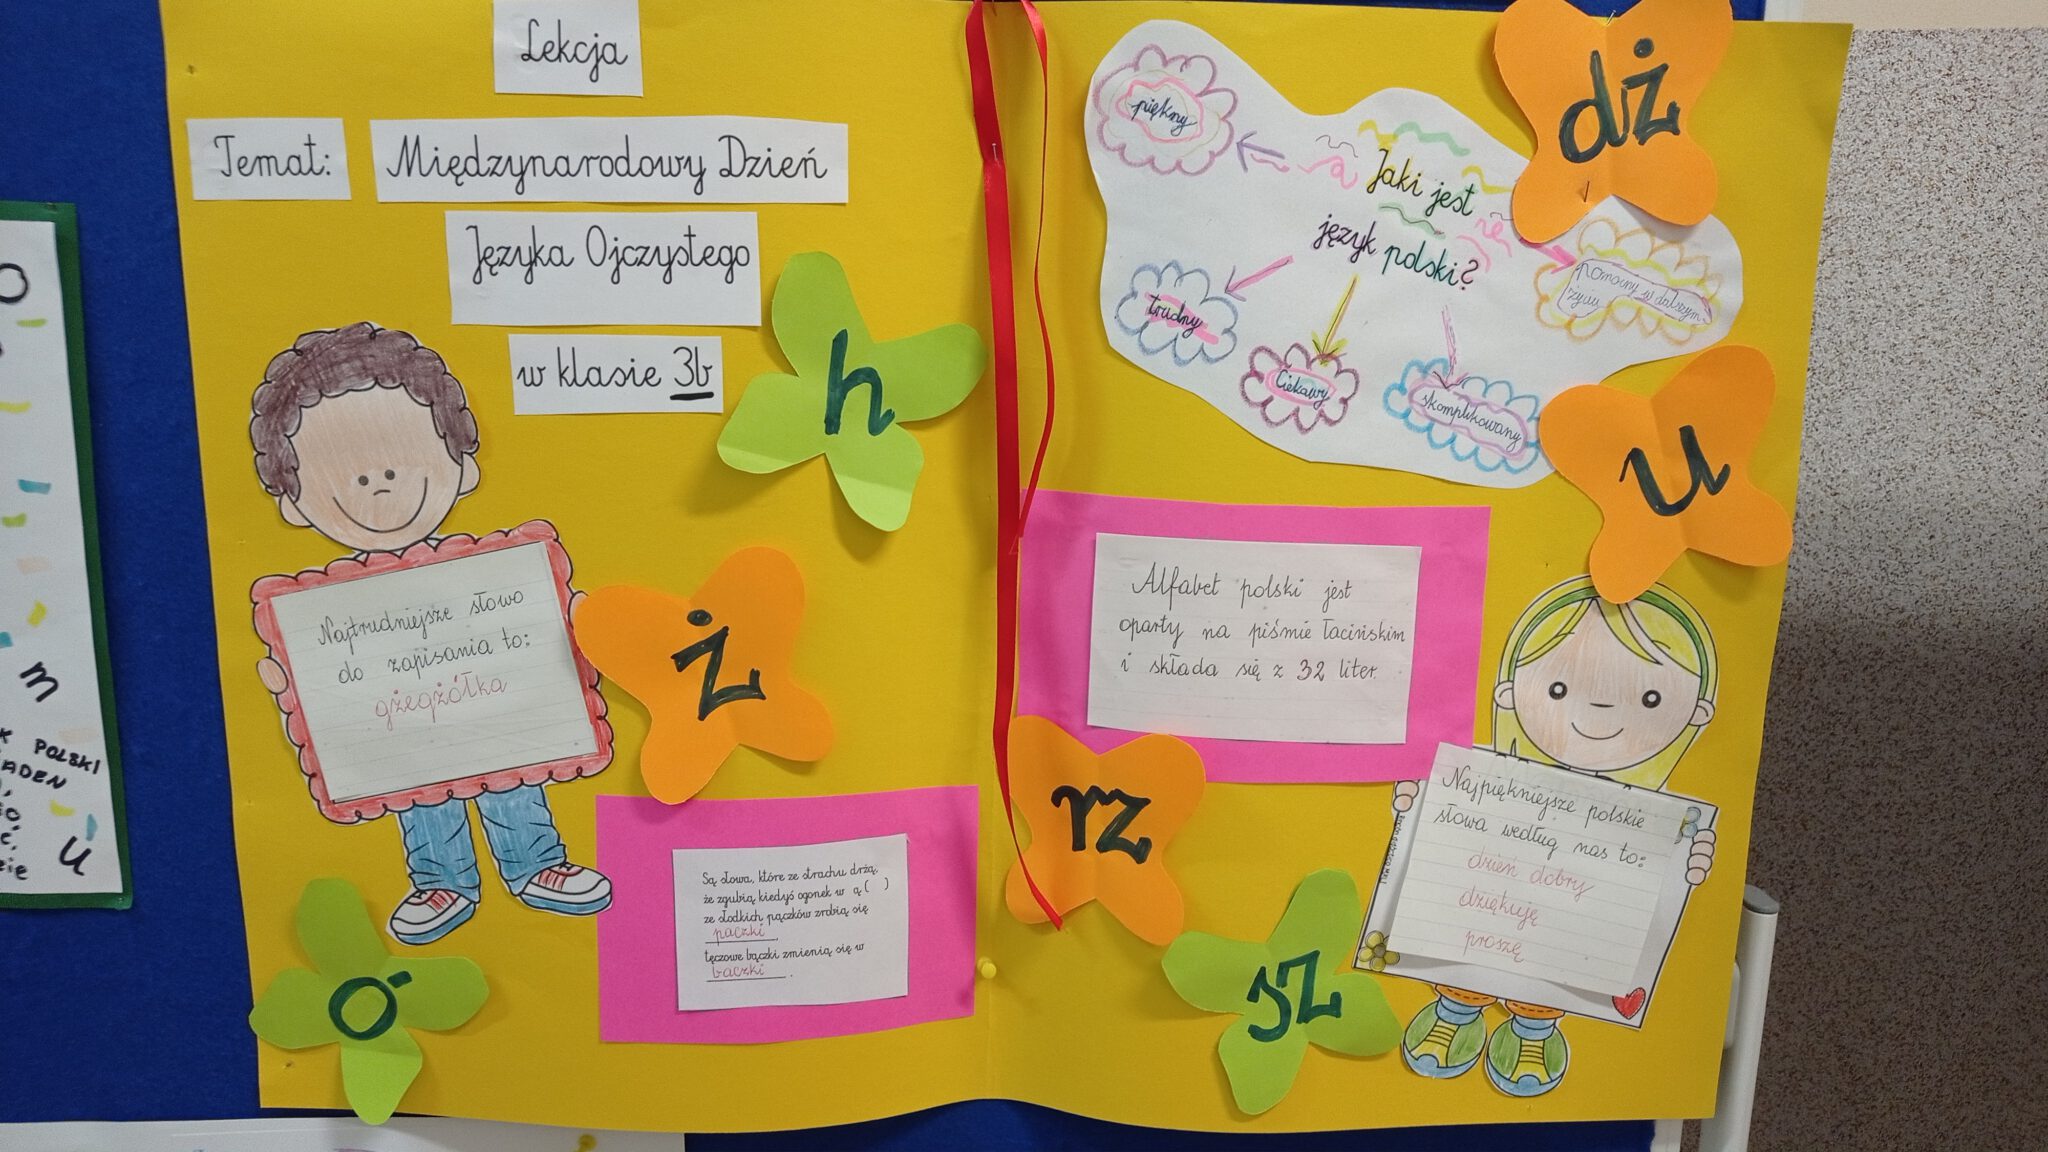 Lekcja
Temat: Międzynarodowy Dzień
Języka Ojczystego
w klasie 3b
h
Najtrudniejsze słowo
do zapisania to:
gżegżółka
ż
Są słowa, które ze strachu drżą,
że zgubią kiedyś ogonek w ą ( )
ze słodkich pączków zrobią się
paczki
tęczowe bączki zmienią się w
baczki .
ó
dż
piękny
Jaki jest
język polski?
trudny
Ciekawy
skomplikowany
pomocny w dalszym
życiu
u
Alfabet polski jest
oparty na piśmie łacińskim
i składa się z 32 liter.
rz
Najpiękniejsze polskie
słowa według nas to:
dzień dobry
dziękuję
proszę
sz
m
POLSKI
u